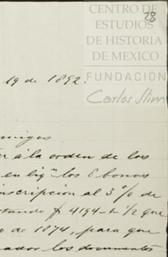 28
CENTRO DE
ESTUDIOS
DE HISTORIA
DE MEXICO
FUNDACIÓN
Carlos Slim
19 de 1892.
amigos
á la orden de los
en big los 6 bonos
inscripcion al 3% de
$ 4194-6½ que
de 1874, para que
los documentos